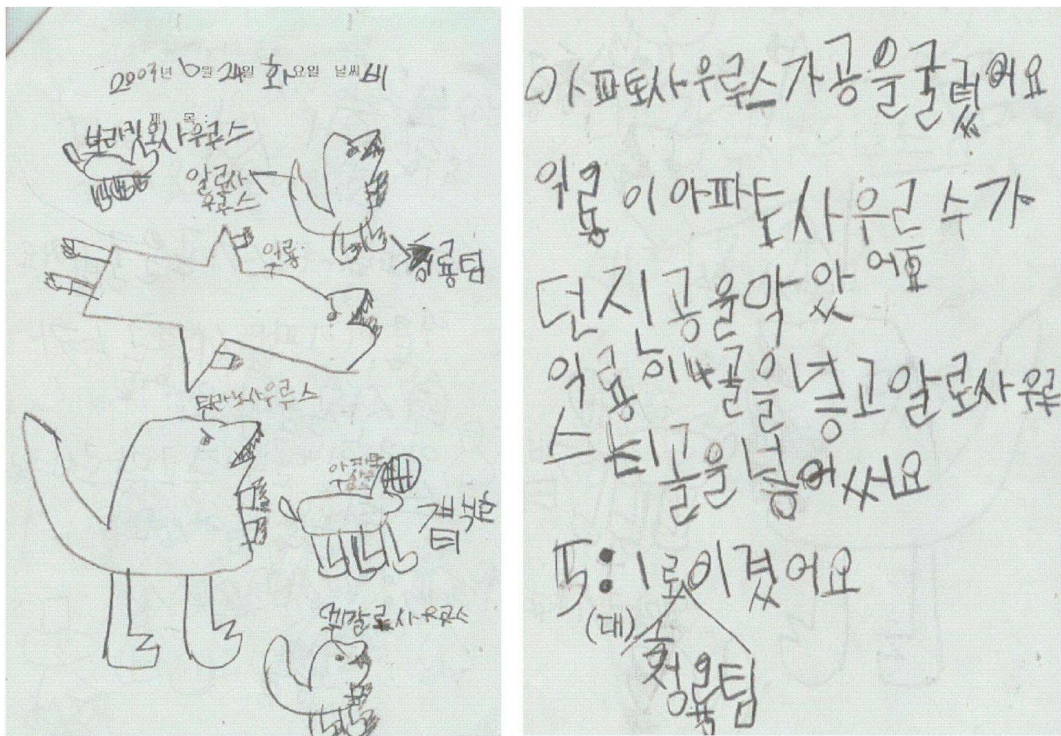 2003년 6월 24일 화요일 날씨 비
제 목:
브라킷오사우루스
알로사
우루스
익룡
청룡팀
티라노사우루스
아파토
사우
메갈로사우루스
아파토사우루스가공을굴렸어요
익룡이아파토사우르수가
던진공을막았어요
익룡이4골을넝고알로사우루
스가1골을넝어써요
5:1로이겼어요
(대)
청룡팀